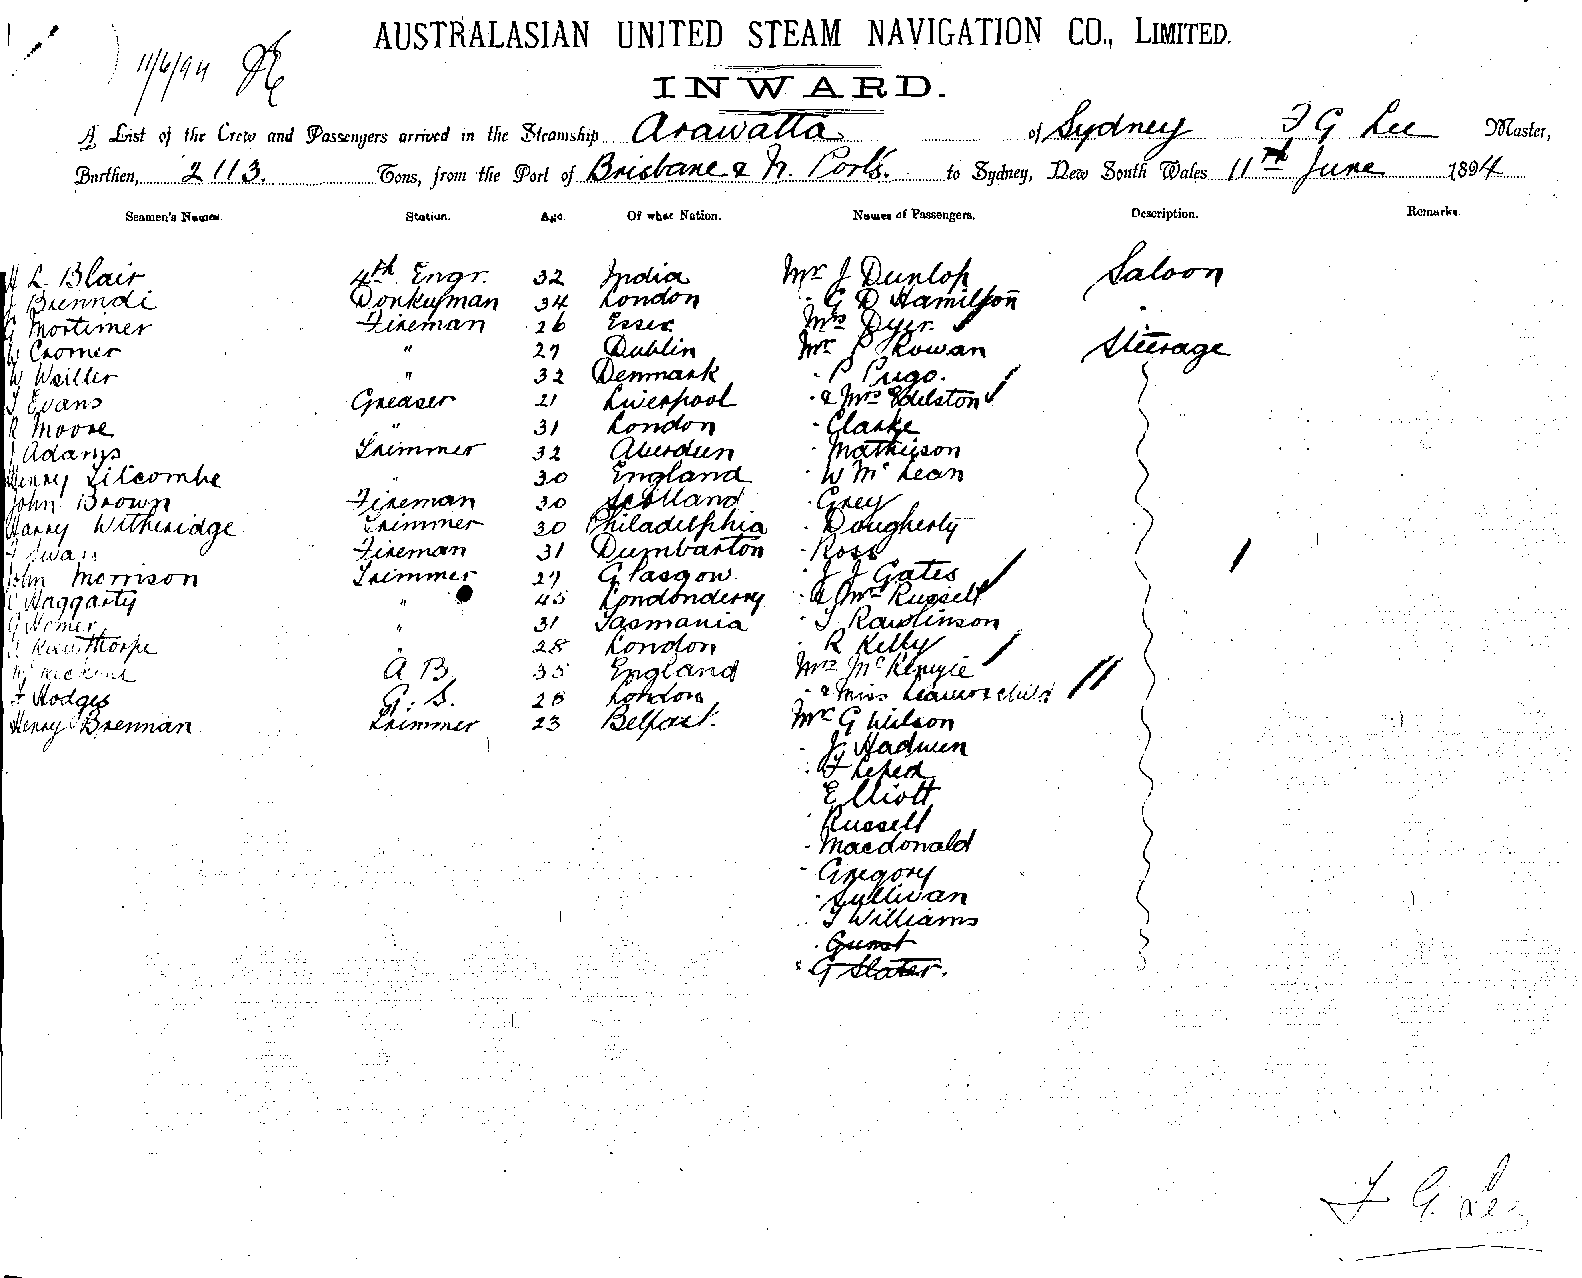 11/6/94
AUSTRALASIAN UNITED STEAM NAVIGATION CO., LIMITED.
INWARD.
A List of the Crew and Passengers arrived in the Steamship Arawatta of Sydney F G Lee Master,
Burthen, 2113. Tons, from the Port of Brisbane & N. Ports. to Sydney, New South Wales 11th June 1894
Seamen's Names. Station. Age. Of what Nation. Names of Passengers. Description. Remarks.
L Blair 4th Engr. 32 India Mr J Dunlop Saloon
Donkeyman 34 London " G D Hamilton "
G Mortimer Fireman 26 Essex Mrs Dyer
W Cromer " 27 Dublin Mr P Rowan Steerage
W Weiller " 32 Denmark " P Pugo.
Evans Greaser 21 Liverpool " & Mrs Edelston
R Moore " 31 London " Clarke
Adams Trimmer 32 Aberdeen " Mathieson
Henry Lilcombe " 30 England " W McLean
John Brown Fireman 30 Scotland " Grey
Harry Witheridge Trimmer 30 Philadelphia " Dougherty
Swan Fireman 31 Dumbarton " Ross
John Morrison Trimmer 27 Glasgow " J J Gates
Haggarty " 45 Londonderry " & Mrs Russell
G Homer " 31 Tasmania " T Rawlinson
" 28 London " R Kelly
A B 35 England Mrs McKenzie
F Hodges G. S. 28 London " & Miss child
Henry Brennan Trimmer 23 Belfast. Mr G Wilson
" J Hadwen
" F
" Elliott
" Russell
" Macdonald
" Gregory
" Sullivan
" T Williams
" Gunst
" G Slater.
F G Lee